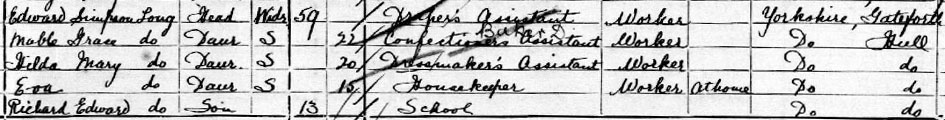 Edward Simpson Long Head Widr 59 Draper's Assistant Worker Yorkshire, Gateforth
Mable Grace do Daur S 22 Confectioner's Assistant Worker Do Hull
Hilda Mary do Daur. S 20 Dressmaker's Assistant Worker Do do
Eva do Daur S 15 Housekeeper Worker At home Do do
Richard Edward do Son 13 School Do do